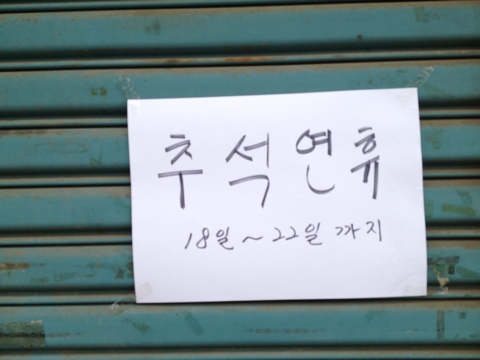 추석연휴
18일~22일까지